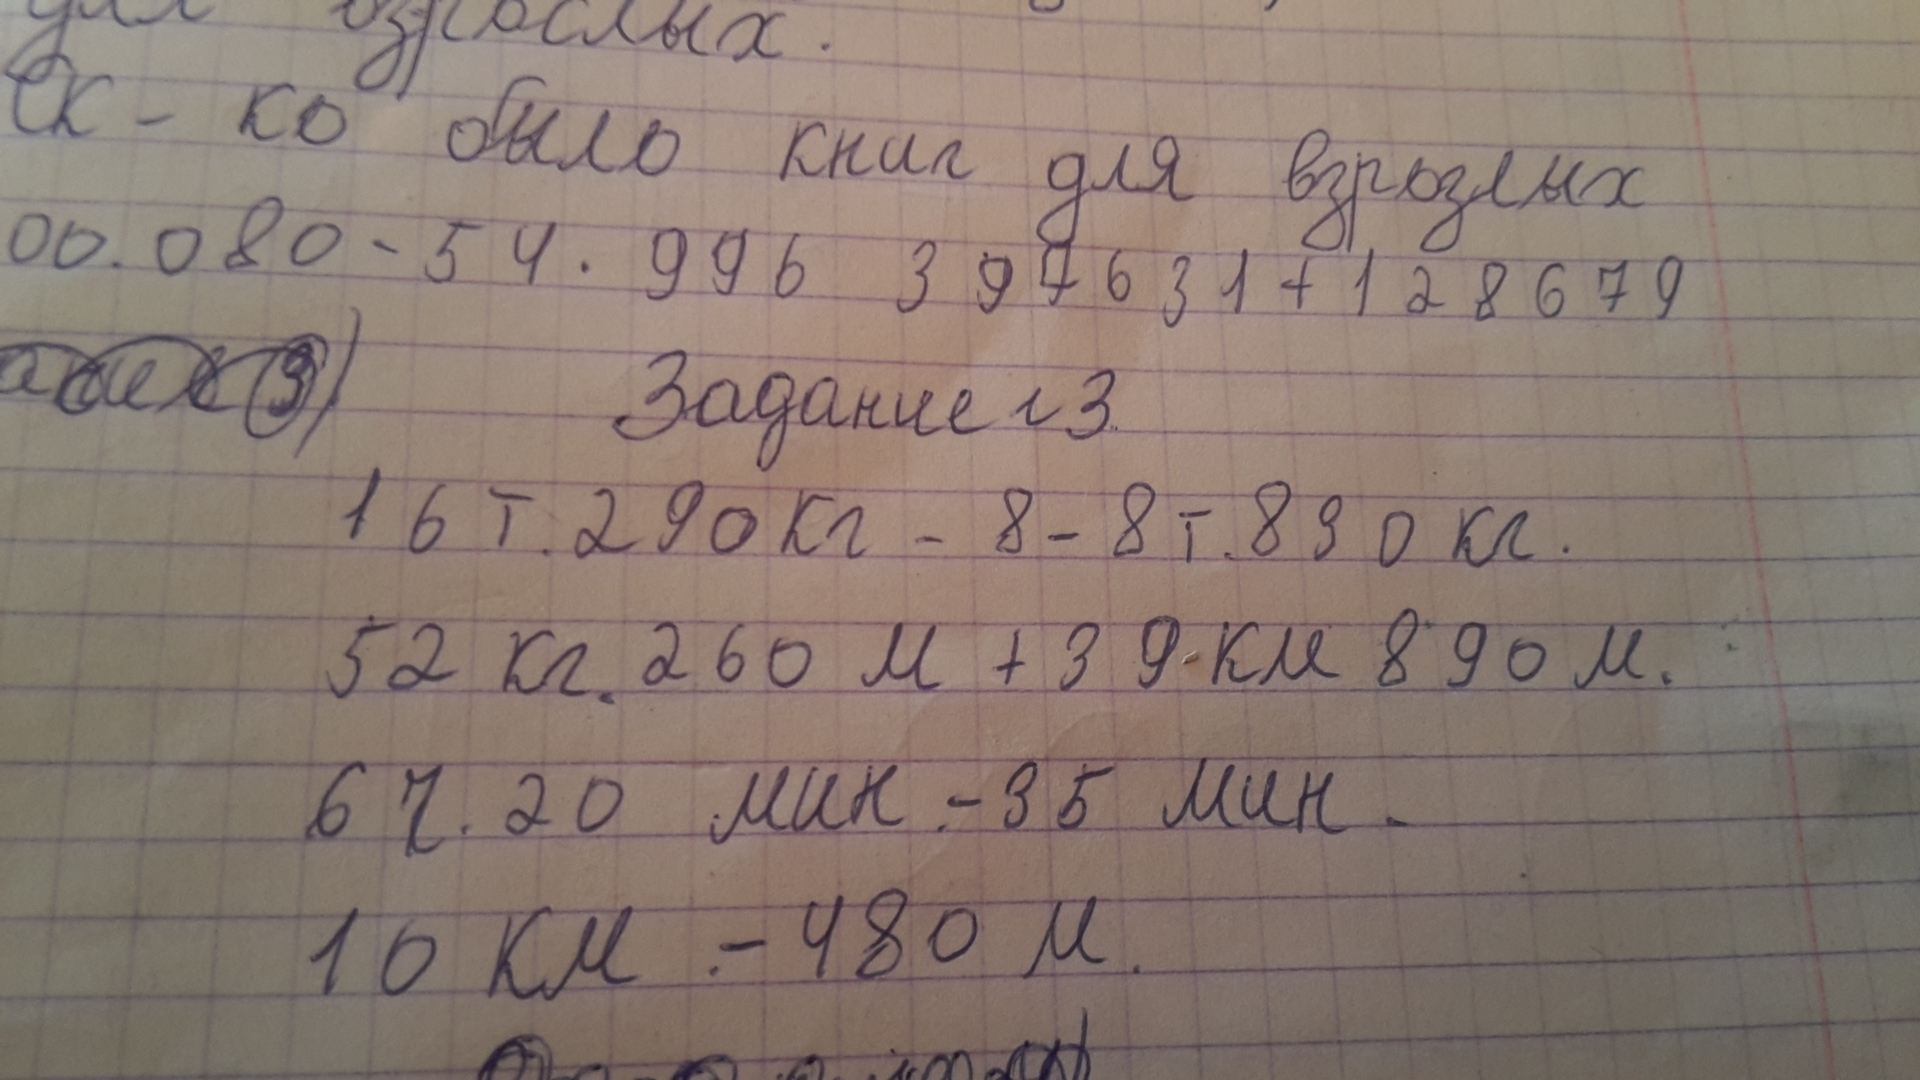 для взрослых.
Ск-ко было книг для взрозлых
00.080-54.996 397631+128679
Задание г3.
16т.290кг-8-8т.890кг.
52 кг.260 м+39.км 890м.
6ч.20 мин.-35 мин.
10 км.-480 м.